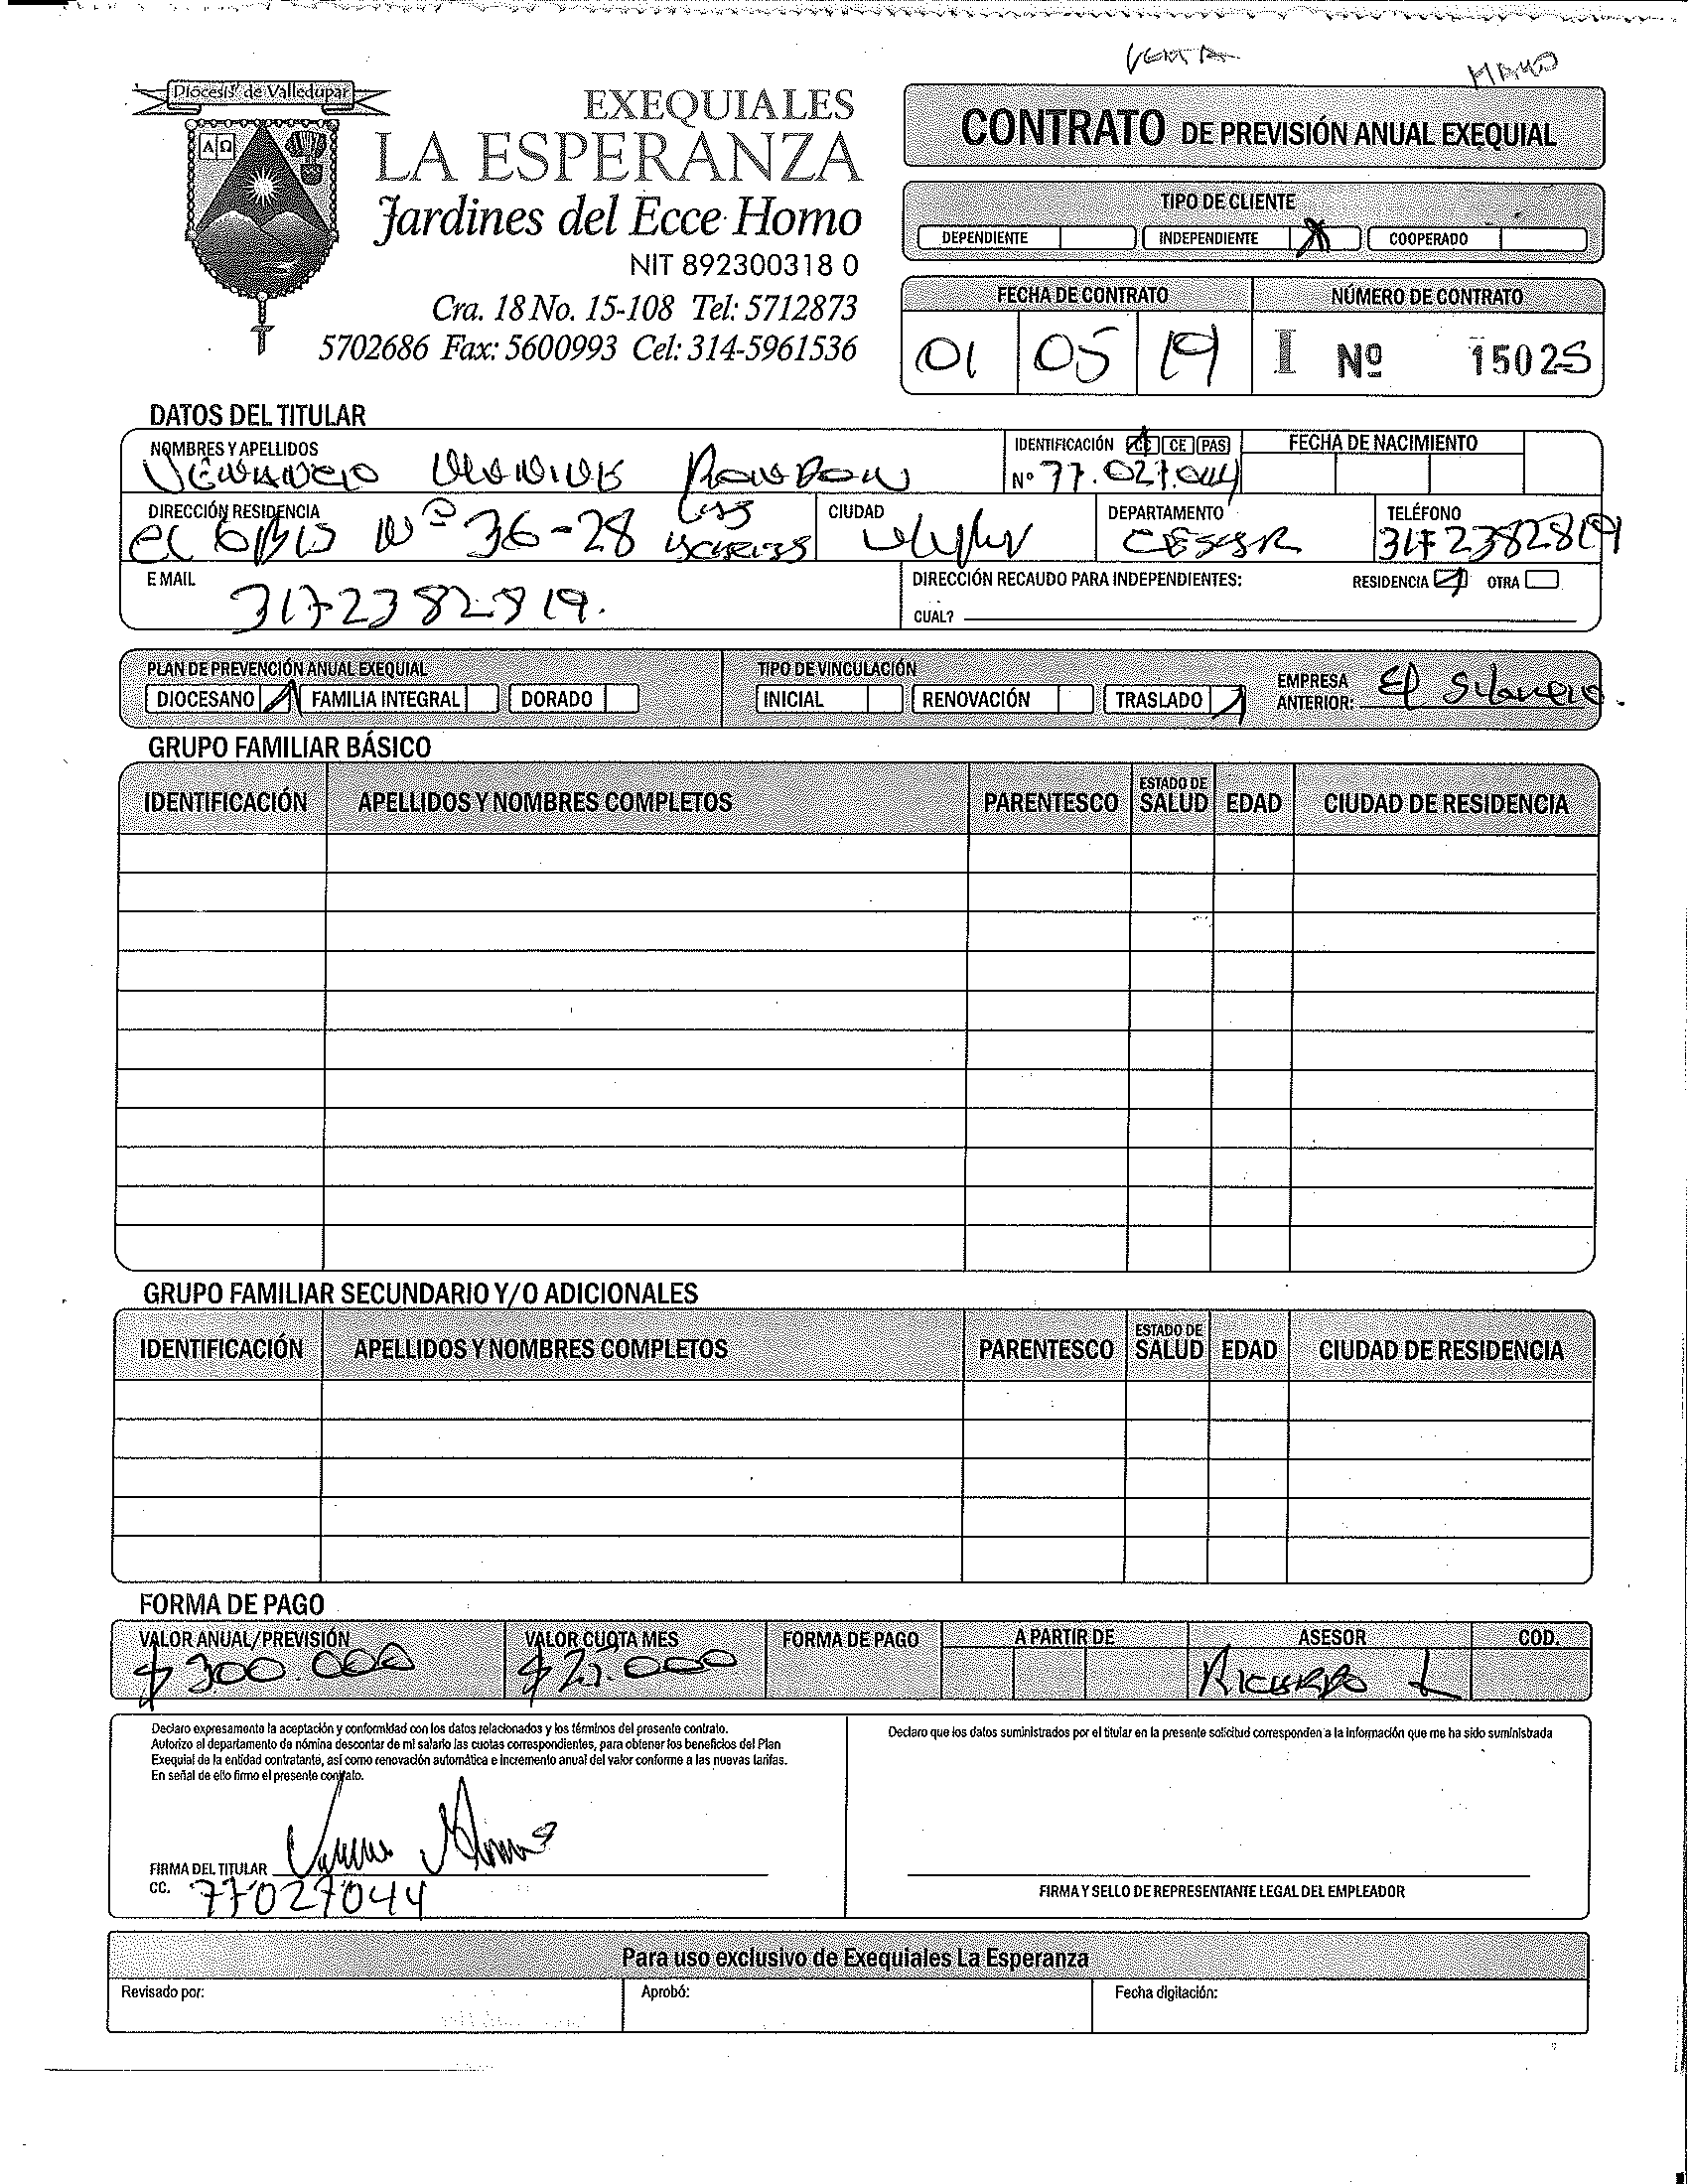 VENTA
MAYO
Diócesis de Valledupar
A Ω
EXEQUIALES
LA ESPERANZA
Jardines del Ecce Homo
NIT 892300318 0
Cra. 18 No. 15-108 Tel: 5712873
5702686 Fax: 5600993 Cel: 314-5961536
CONTRATO DE PREVISIÓN ANUAL EXEQUIAL
TIPO DE CLIENTE
DEPENDIENTE INDEPENDIENTE X COOPERADO
FECHA DE CONTRATO NÚMERO DE CONTRATO
01 05 19 I Nº 15025
DATOS DEL TITULAR
NOMBRES Y APELLIDOS IDENTIFICACIÓN CC CE PAS FECHA DE NACIMIENTO
Nº 77.027.044
DIRECCIÓN RESIDENCIA CIUDAD DEPARTAMENTO TELÉFONO
Nº 36-28 CESAR 317 2382819
E MAIL DIRECCIÓN RECAUDO PARA INDEPENDIENTES: RESIDENCIA OTRA
3172382819.
CUAL?
PLAN DE PREVENCIÓN ANUAL EXEQUIAL TIPO DE VINCULACIÓN EMPRESA ANTERIOR: El
DIOCESANO FAMILIA INTEGRAL DORADO INICIAL RENOVACIÓN TRASLADO
GRUPO FAMILIAR BÁSICO
IDENTIFICACIÓN APELLIDOS Y NOMBRES COMPLETOS PARENTESCO ESTADO DE SALUD EDAD CIUDAD DE RESIDENCIA
GRUPO FAMILIAR SECUNDARIO Y/O ADICIONALES
IDENTIFICACIÓN APELLIDOS Y NOMBRES COMPLETOS PARENTESCO ESTADO DE SALUD EDAD CIUDAD DE RESIDENCIA
FORMA DE PAGO
VALOR ANUAL/PREVISIÓN VALOR CUOTA MES FORMA DE PAGO A PARTIR DE ASESOR COD.
$ 300.000 RICARDO L
Declaro expresamente la aceptación y conformidad con los datos relacionados y los términos del presente contrato.
Autorizo al departamento de nómina descontar de mi salario las cuotas correspondientes, para obtener los beneficios del Plan
Exequial de la entidad contratante, así como renovación automática e incremento anual del valor conforme a las nuevas tarifas.
En señal de ello firmo el presente contrato.
Declaro que los datos suministrados por el titular en la presente solicitud corresponden a la información que me ha sido suministrada
FIRMA DEL TITULAR
CC. 77027044
FIRMA Y SELLO DE REPRESENTANTE LEGAL DEL EMPLEADOR
Para uso exclusivo de Exequiales La Esperanza
Revisado por: Aprobó: Fecha digitación: